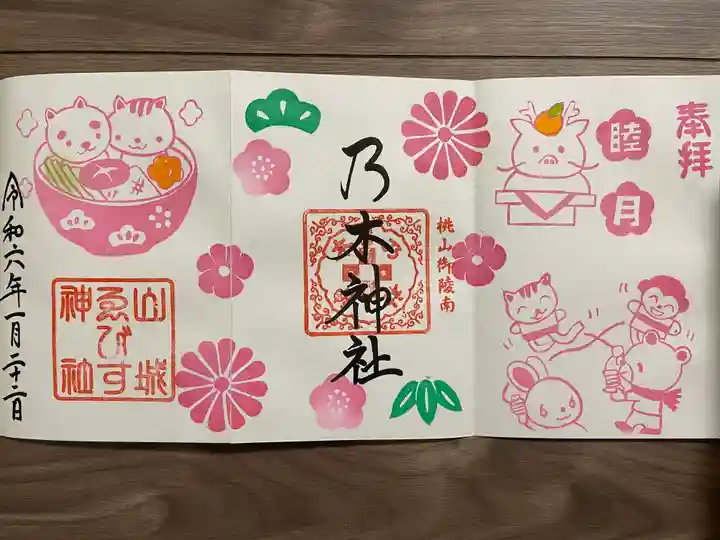 奉拝
睦月
桃山御陵南
乃木神社
山城
ゑびす
神社
令和六年一月二十二日